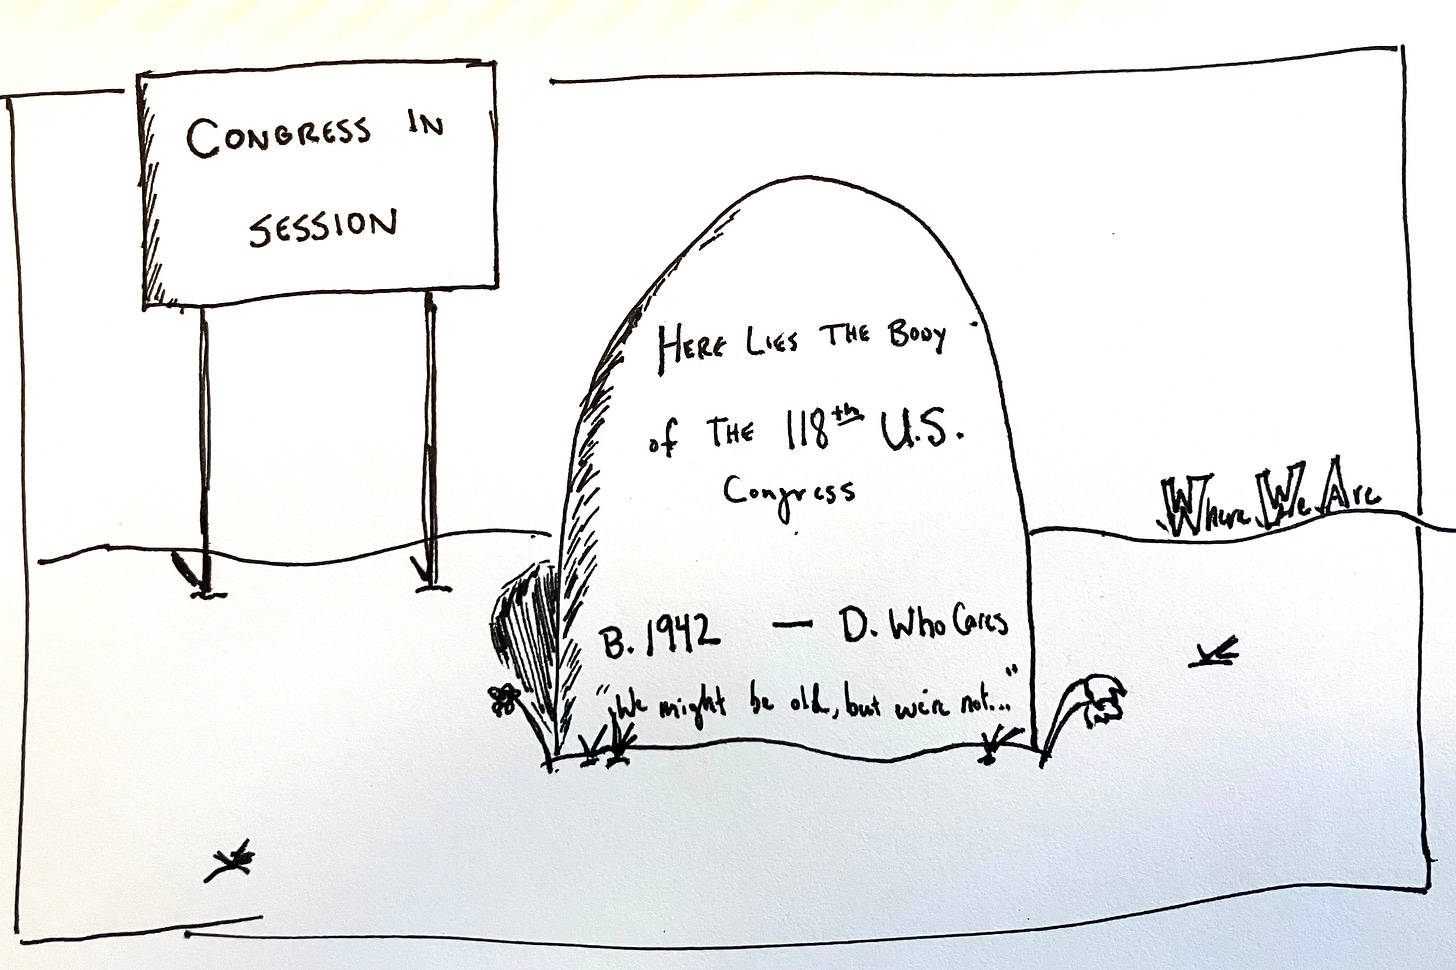 CONGRESS IN
SESSION
HERE LIES THE BODY
of THE 118th U.S.
Congress
B. 1942 — D. Who Cares
"We might be old, but we're not..."
Where We Are